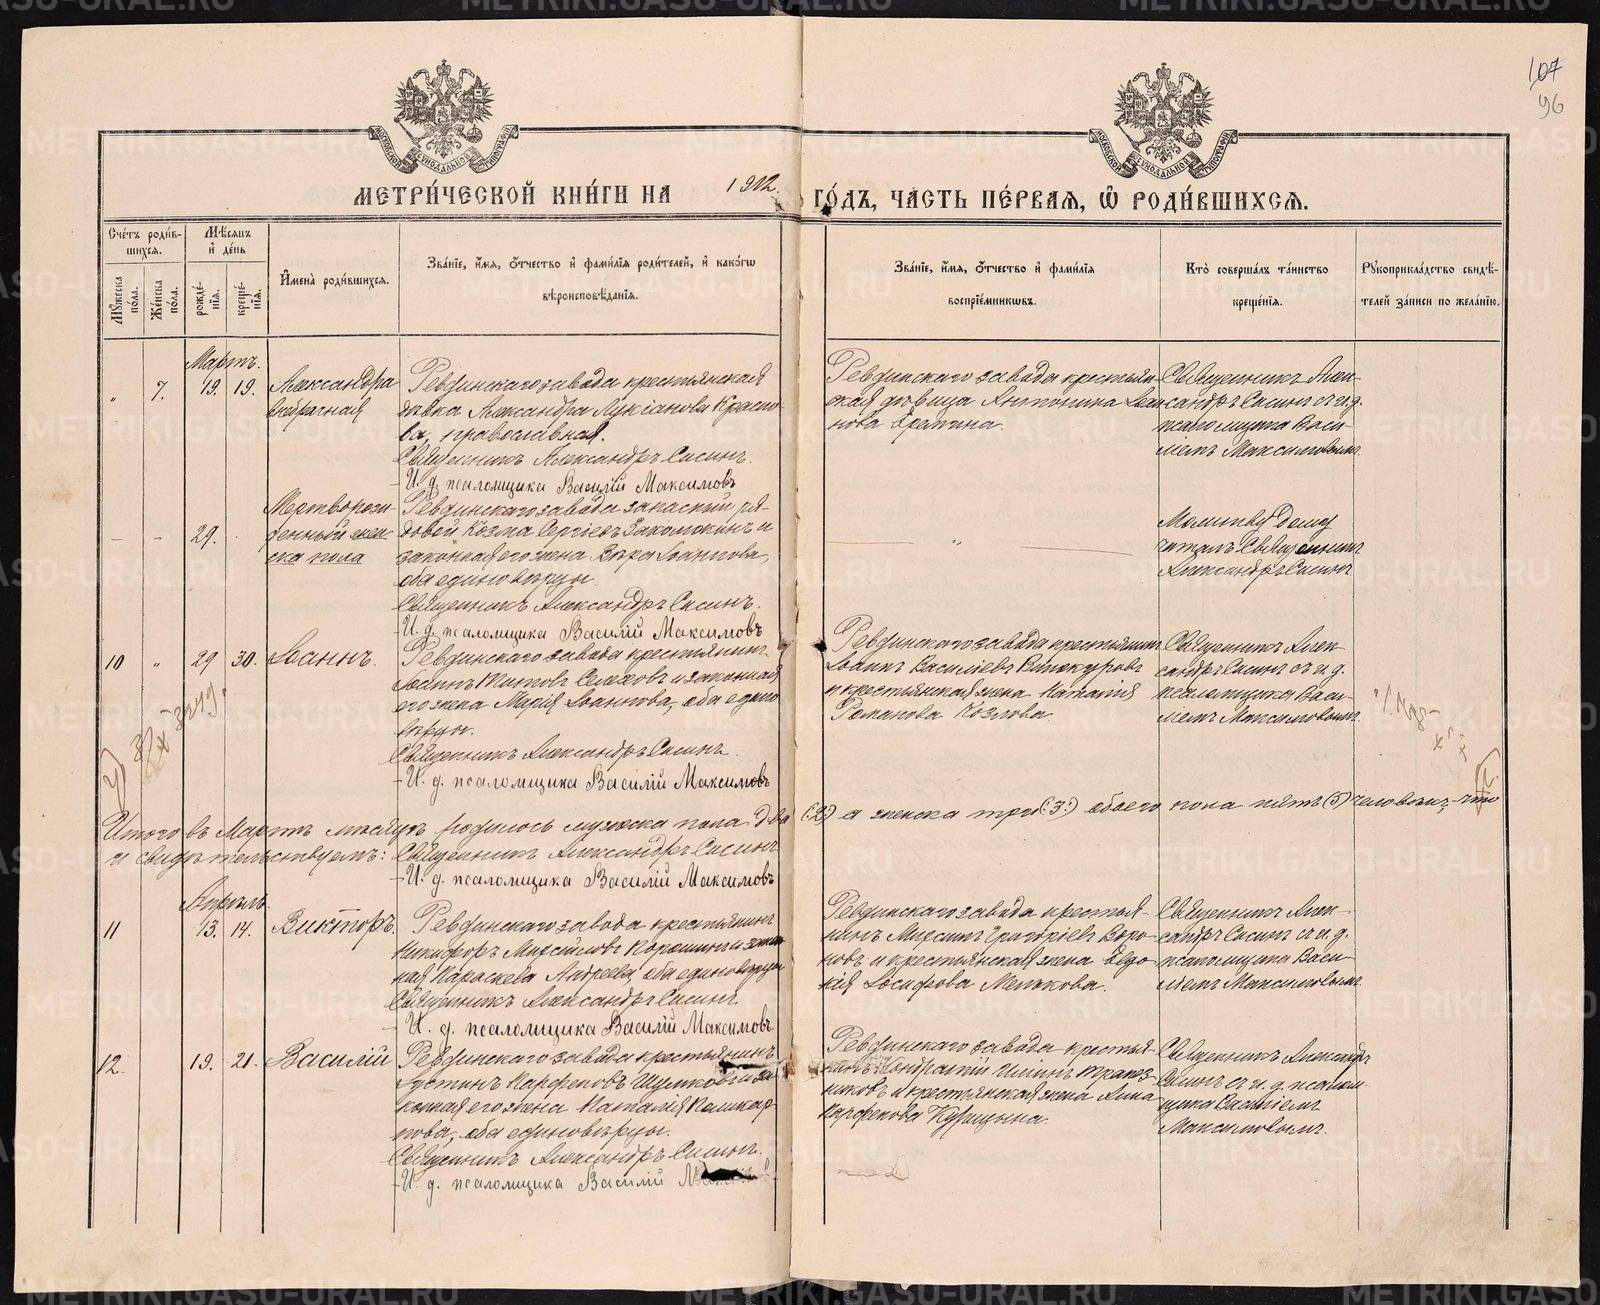 107
96
МЕТРИ́ЧЕСКОЙ КНИ́ГИ НА 1912. ГО́ДЪ, ЧА́СТЬ ПЕ́РВАЯ, Ѽ РОДИ́ВШИХСЯ.
Сче́тъ роди́в-
шихся.
Мꙋ́жеска по́ла.
Же́нска по́ла.
Мѣ́сяцъ и де́нь
рожде́-
нїя.
креще́-
нїя.
Имена̀ роди́вшихся.
Зва́нїе, и́мя, о́тчество и фами́лїя роди́телей, и како́гѡ
вѣроисповѣ́данїя.
Зва́нїе, и́мя, о́тчество и фами́лїя
воспрїе́мникѡвъ.
Кто̀ соверша́лъ та́инство
креще́нїя.
Рꙋкоприкла́дство свидѣ́-
телей за́писи по жела́нїю.
Мартъ.
" 7. 19. 19. Александра
внѣбрачная
Ревдинскаго завода крестьянская
дѣвка Александра Лукіанова
православная.
Священникъ Александръ Сасинъ.
И. д. псаломщика Василій Максимовъ
Ревдинскаго завода крестьян-
ская дѣвица Антонина Іоан-
нова Еремина.
Священникъ Алек-
сандръ Сасинъ съ и. д.
псаломщика Васи-
ліемъ Максимовымъ.
29. Мертворож-
денный жен-
ска пола
Ревдинскаго завода запасный ря-
довой Козма Сергіевъ Закомокинъ и
законная его жена Вѣра Іоаннова,
оба единовѣрцы.
Священникъ Александръ Сасинъ.
И. д. псаломщика Василій Максимовъ
Молитву дому
читалъ Священникъ
Александръ Сасинъ
10 " 29 30. Іоаннъ.
Ревдинскаго завода крестьянинъ
Іоаннъ Титовъ и законная
его жена Марія Іоаннова, оба едино-
вѣрцы.
Священникъ Александръ Сасинъ
И. д. псаломщика Василій Максимовъ
Ревдинскаго завода крестьянинъ
Іоаннъ Васильевъ Винокуровъ
и крестьянская жена Наталія
Романова Козлова.
Священникъ Алек-
сандръ Сасинъ съ и. д.
псаломщика Васи-
ліемъ Максимовымъ.
Итого въ Мартѣ мѣсяцѣ родилось мужска пола два (:2:) а женска три (:3:) обоего пола пять (5) человѣкъ, что
и свидѣтельствуемъ: Священникъ Александръ Сасинъ
И. д. псаломщика Василій Максимовъ
Апрѣль.
11 13. 14. Викторъ.
Ревдинскаго завода крестьянинъ
Никифоръ и закон-
ная Параскева Андреева, оба единовѣрцы
Священникъ Александръ Сасинъ.
И. д. псаломщика Василій Максимовъ
Ревдинскаго завода крестья-
нинъ Григоріевъ Воро-
новъ и крестьянская жена Евдо-
кія Іосифова Мелькова.
Священникъ Алек-
сандръ Сасинъ съ и. д.
псаломщика Васи-
ліемъ Максимовымъ.
12. 19. 21. Василій
Ревдинскаго завода крестьянинъ
Іустинъ Парфеновъ Шумковъ и за-
конная его жена Наталія
оба единовѣрцы.
Священникъ Александръ Сасинъ.
И. д. псаломщика Василій
Ревдинскаго завода крестья-
нинъ Кондратій Ильинъ Трапез-
никовъ и крестьянская жена Анна
Парфенова Курицына.
Священникъ Александръ
Сасинъ съ и. д. псалом-
щика Василіемъ
Максимовымъ.
METRIKI.GASO-URAL.RU